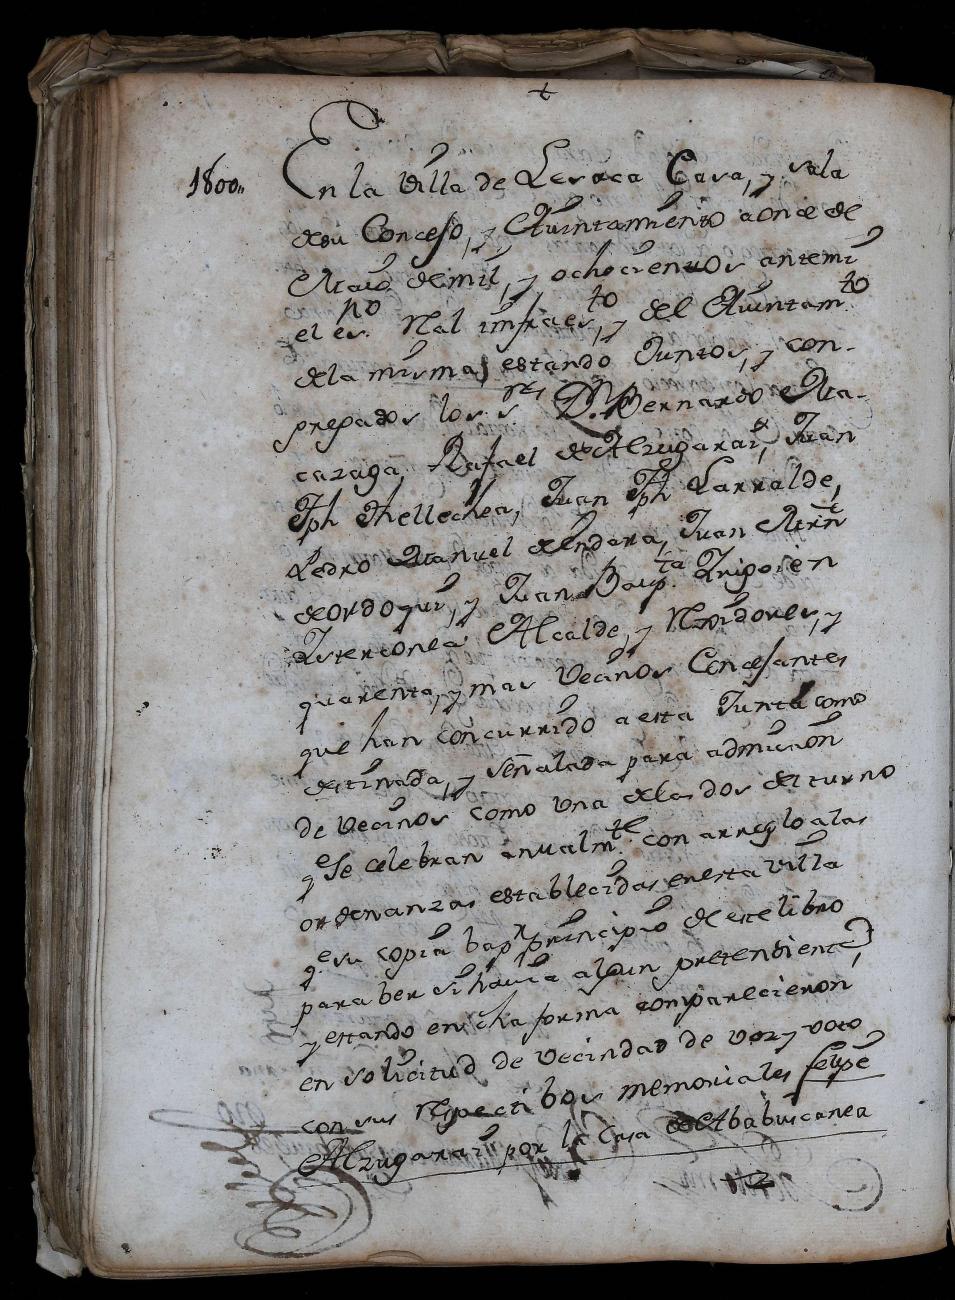 +
1800,, En la Villa de Lesaca Casa, y sala
de su Concejo, y Aiuntamiento a once de
Maio de mil, y ochocientos ante mi
el es.no Real infraes.to, y del Aiuntam.to
de la misma, estando Juntos, y con-
pregados los s.res Dn. Bernardo Ma-
cazaga, Rafael de Alzugarai, Juan
Jph Thellechea, Juan Jph Larralde,
Pedro Manuel de Endara, Juan Mrtn
de Ordoqui, y Juan Baup.ta Irigoien
Istericonea Alcalde, y Regidores, y
quarenta, y mas Vecinos Concejantes
que han concurrido a esta Junta como
destinada, y señalada para admision
de Vecinos como una de las dos del turno
q.e se celebran anualm.te con arreglo a las
ordenanzas establecidas en esta villa
q.e su copia bajo principio de este libro
para ber si havia algun pretendiente,
y estando en dicha forma comparecieron
en solicitud de Vecindad de voz y voto
con sus respectibos memoriales Felipe
Alzugarai por la Casa de Ababuscanea